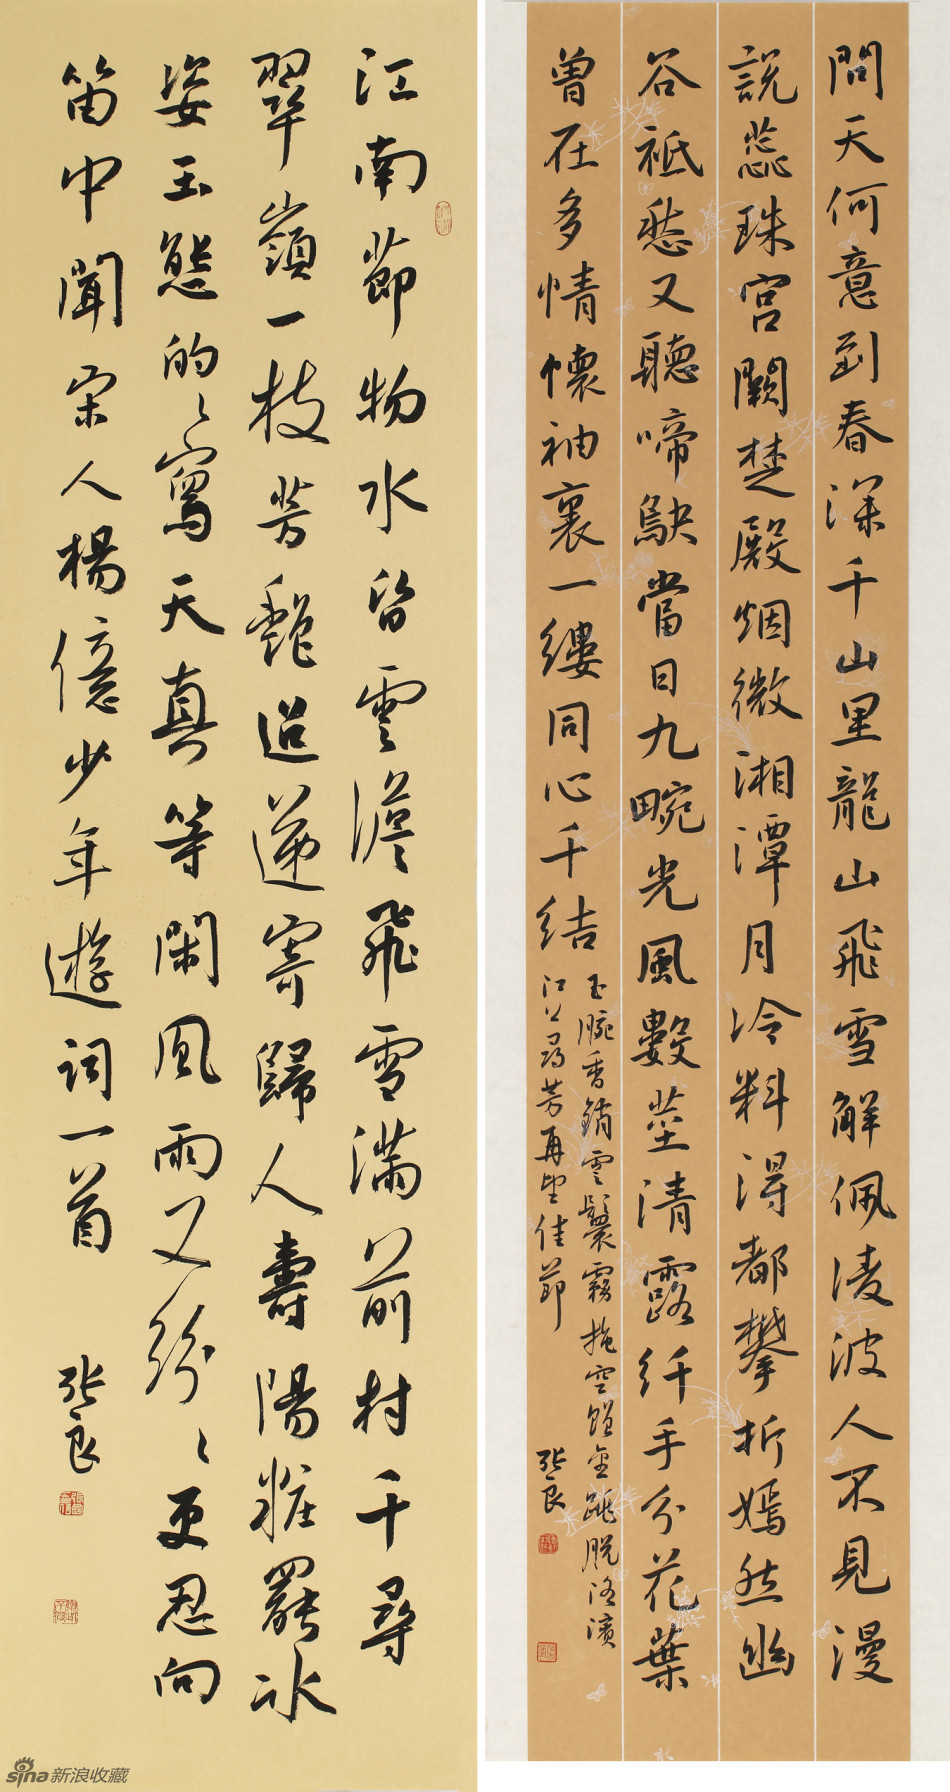 問天何意到春深千山里龍山飛雪解佩凌波人不見漫
說蕊珠宮闕楚殿烟微湘潭月冷料得都攀折嫣然幽
谷祗愁又聽啼鴃當日九畹光風數莖清露纤手分花葉
曾在多情懷袖裏一縷同心千结
玉腕香銷雲鬟霧掩空贈金跳脫洛濱
江上尋芳再望佳節
张良
江南節物水昏雲澹飛雪滿前村千尋
翠嶺一枝芳艷迢遞寄歸人壽陽粧罷冰
姿玉態的〻寫天真等閑風雨又紛〻更忍向
笛中聞宋人楊億少年遊詞一首
张良
sina新浪收藏